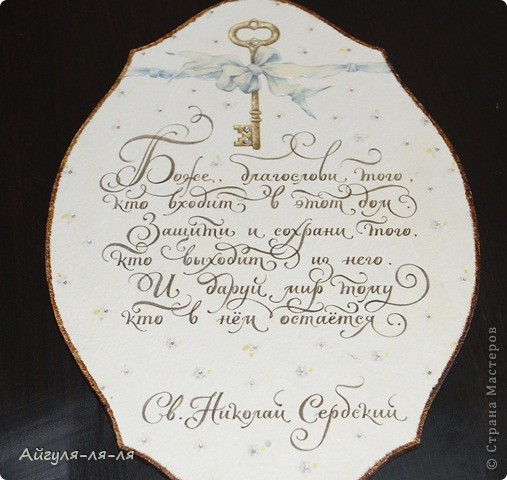 Боже, благослови того,
кто входит в этот дом.
Защити и сохрани того,
кто выходит из него.
И даруй мир тому
кто в нём остаётся.
Св. Николай Сербский
Айгуля-ля-ля
© Страна Мастеров